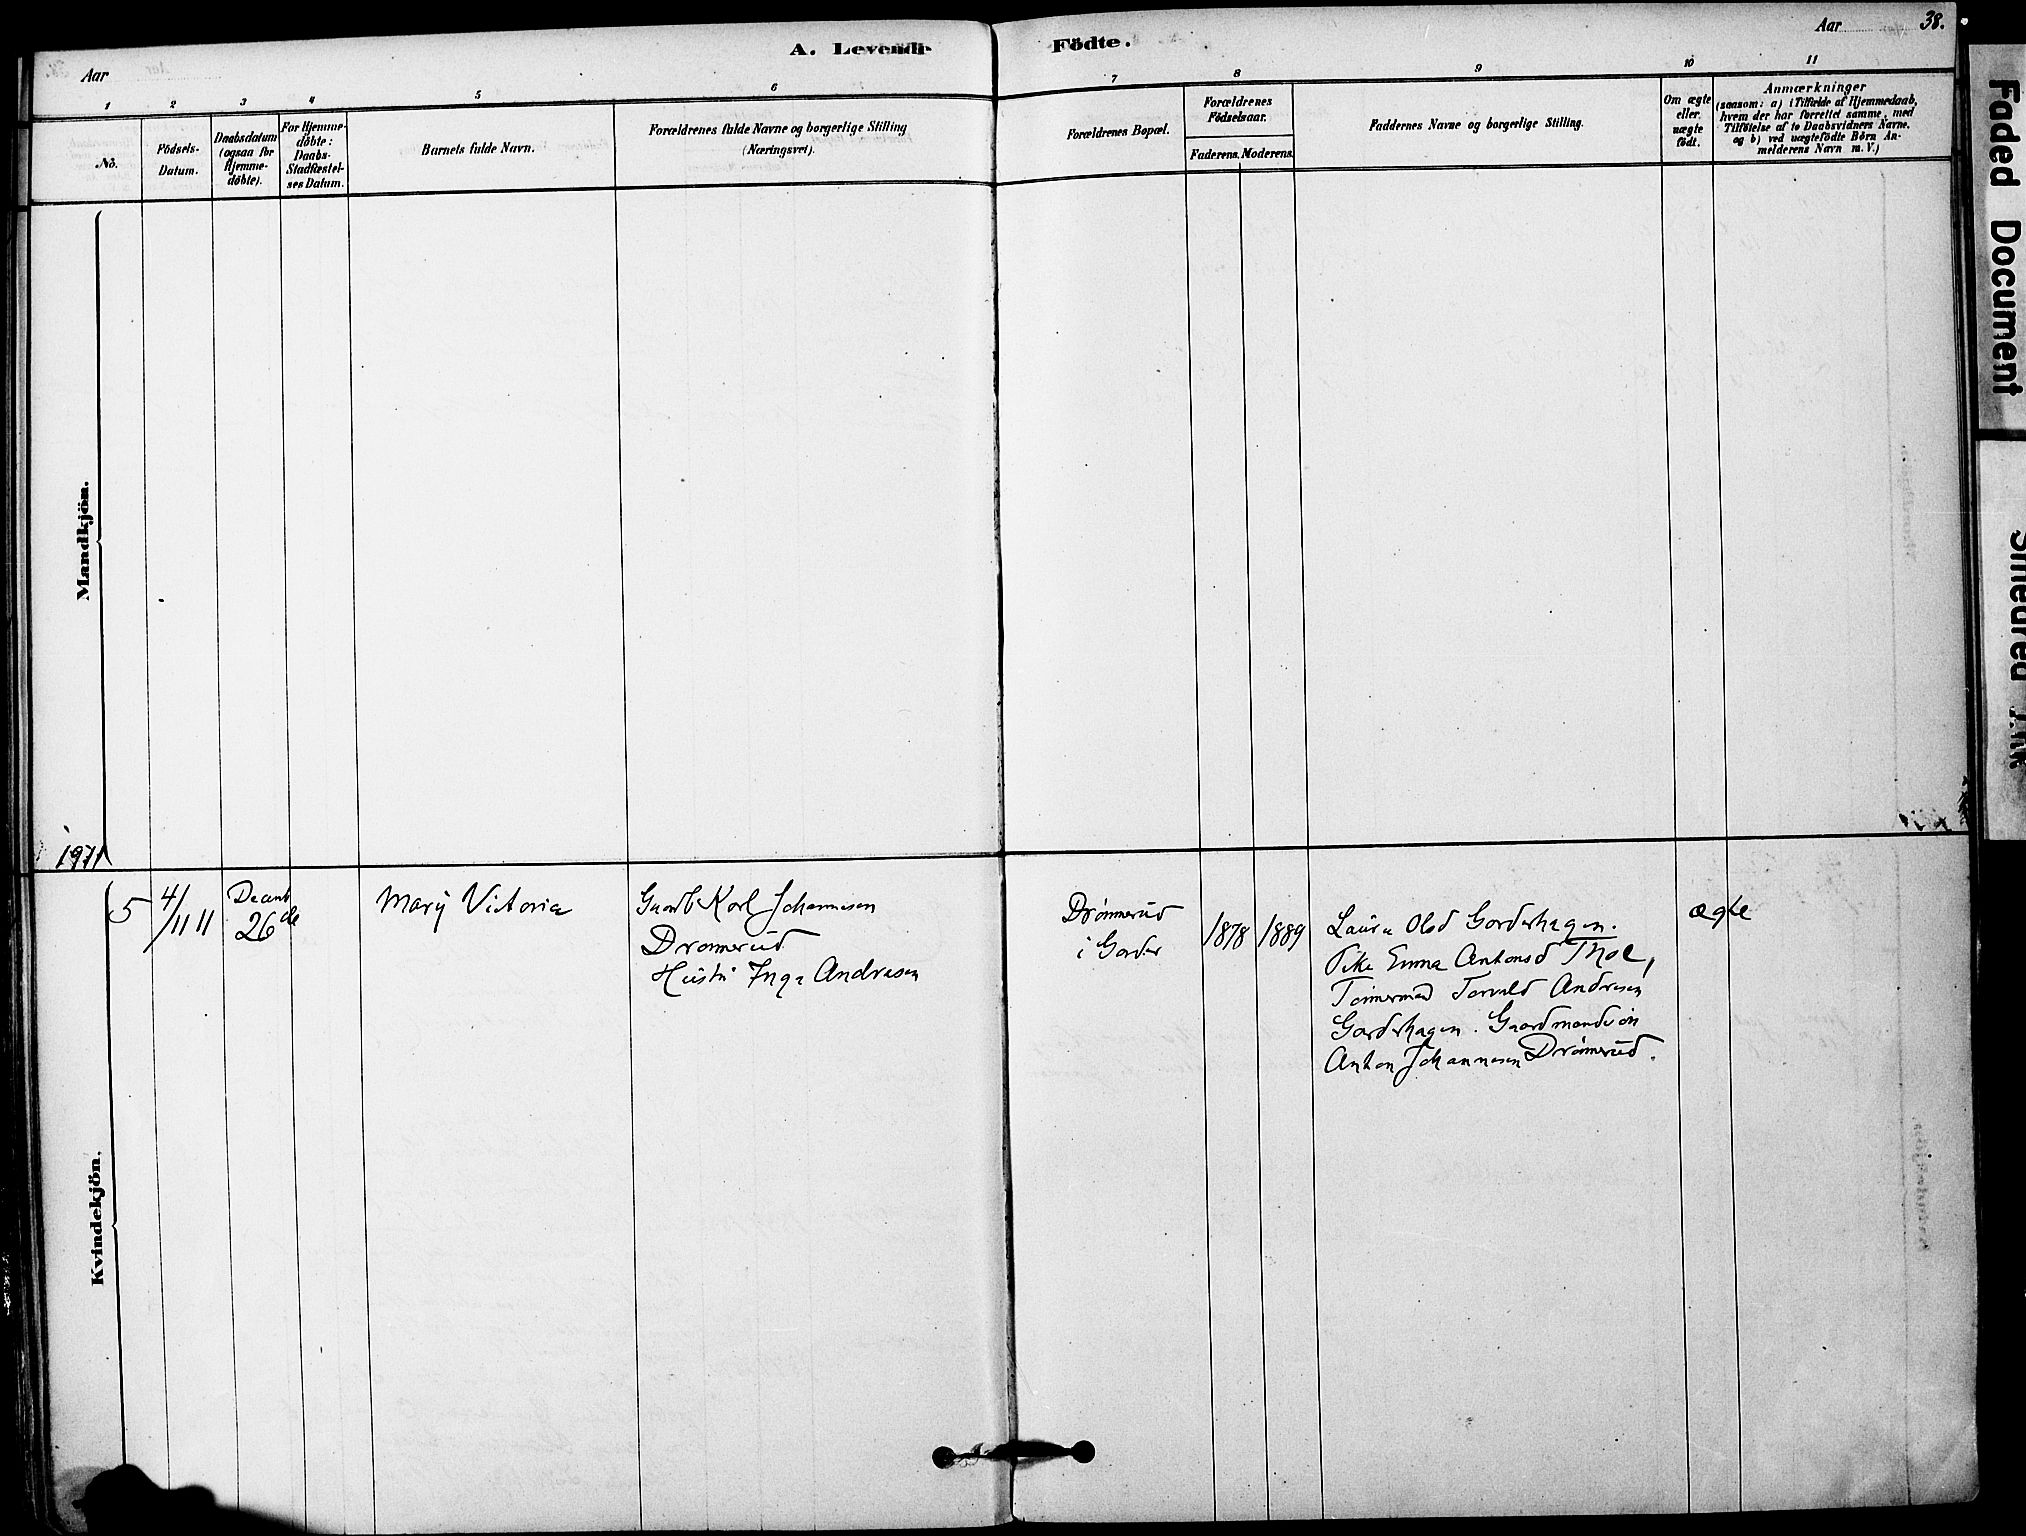 A. Levende Födte.
Aar
Aar 38.
1 2 3 4 5 6 7 8 9 10 11
No.
Födsels-
Datum.
Daabsdatum
(ogsaa for
Hjemme-
döbte).
For Hjemme-
döbte:
Daabs-
Stadfæstel-
ses Datum.
Barnets fulde Navn.
Forældrenes fulde Navne og borgerlige Stilling
(Næringsvei).
Forældrenes Bopæl.
Forældrenes
Födselsaar.
Faderens. Moderens.
Faddernes Navne og borgerlige Stilling.
Om ægte
eller
uægte
født.
Anmærkninger
(saasom: a) i Tilfælde af Hjemmedaab,
hvem der har forrettet samme, med
Tilföielse af to Daabsvidners Navne.
og b) ved uægtefödte Börn An-
melderens Navn m. V.)
Mandkjön.
1911
Kvindekjön.
5
4/11 11
Decemb
26de
Mary Victoria
Gaarb Karl Johannesen
Drømerud
Hustru Inga Andresen
Drømmerud
i Garder
1878
1889
Laura Olsd Garderhagen.
Pike Emma Antonsd Moe,
Tømermand Torvald Andresen
Garderhagen. Gaardmandsøn
Anton Johannesen Drømerud.
ægte
Faded Document
Smeared Ink